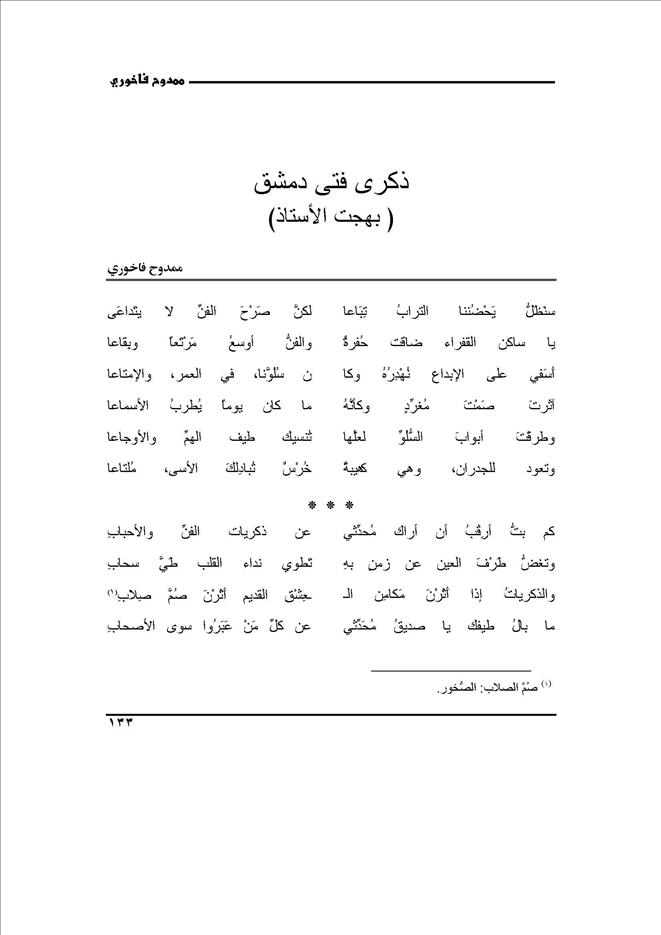 ممدوح فاخوري
ذكرى فتى دمشق
( بهجت الأستاذ)
ممدوح فاخوري
سنَظلُّ يَحْضُننا الترابُ تِبَاعا لكنَّ صَرْحَ الفنِّ لا يتداعَى
يا ساكن القفراء ضاقت حُفرةٌ والفنُّ أوسعُ مَرْتَعاً وبقاعا
أسَفي على الإبداع نُهْدِرُهُ وكا ن سُلُوَّنا، في العمر، والإمتاعا
آثرتَ صَمْتَ مُغرِّدٍ وكأنَّهُ ما كان يوماً يُطربُ الأسماعا
وطرقْتَ أبوابَ السُّلُوِّ لعلَّها تُنسيك طيف الهمِّ والأوجاعا
وتعود للجدران، وهي كئيبةٌ خُرْسٌ تُبادِلكَ الأسى، مُلتاعا
* * *
كم بتُّ أرقُبُ أن أراك مُحدِّثي عن ذكريات الفنِّ والأحبابِ
وتغضُّ طرْفَ العين عن زمنٍ بهِ تَطوي نداء القلب طيَّ سحابِ
والذكرياتُ إذا أثَرْنَ مَكامِن الـ ـعِشْقِ القديم أثَرْنَ صُمَّ صِلابِ(١)
ما بالُ طيفك يا صديقُ مُحَدِّثي عن كلِّ مَنْ عَبَرُوا سوى الأصحابِ
(١) صُمَّ الصلاب: الصُّخور.
١٣٣